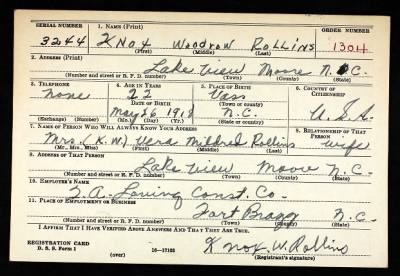 SERIAL NUMBER 1. NAME (Print) ORDER NUMBER
3244 Knox Woodrow Rollins 1304
(First) (Middle) (Last)
2. ADDRESS (Print)
Lake View Moore N. C.
(Number and street or R. F. D. number) (Town) (County) (State)
3. TELEPHONE 4. AGE IN YEARS 5. PLACE OF BIRTH 6. COUNTRY OF CITIZENSHIP
None 22 Vass
DATE OF BIRTH (Town or county)
May 26 1918 N. C. U. S. A.
(Exchange) (Number) (Mo.) (Day) (Yr.) (State or country)
7. NAME OF PERSON WHO WILL ALWAYS KNOW YOUR ADDRESS 8. RELATIONSHIP OF THAT PERSON
Mrs. (K. W.) Mildred Rollins wife
(Mr., Mrs., Miss) (First) (Middle) (Last)
9. ADDRESS OF THAT PERSON
Lake View Moore N. C.
(Number and street or R. F. D. number) (Town) (County) (State)
10. EMPLOYER'S NAME
T. A. Loving Const. Co.
11. PLACE OF EMPLOYMENT OR BUSINESS
Fort Bragg N. C.
(Number and street or R. F. D. number) (Town) (County) (State)
I AFFIRM THAT I HAVE VERIFIED ABOVE ANSWERS AND THAT THEY ARE TRUE.
REGISTRATION CARD
D. S. S. Form 1 (over) 16-17105 Knox W. Rollins
(Registrant's signature)